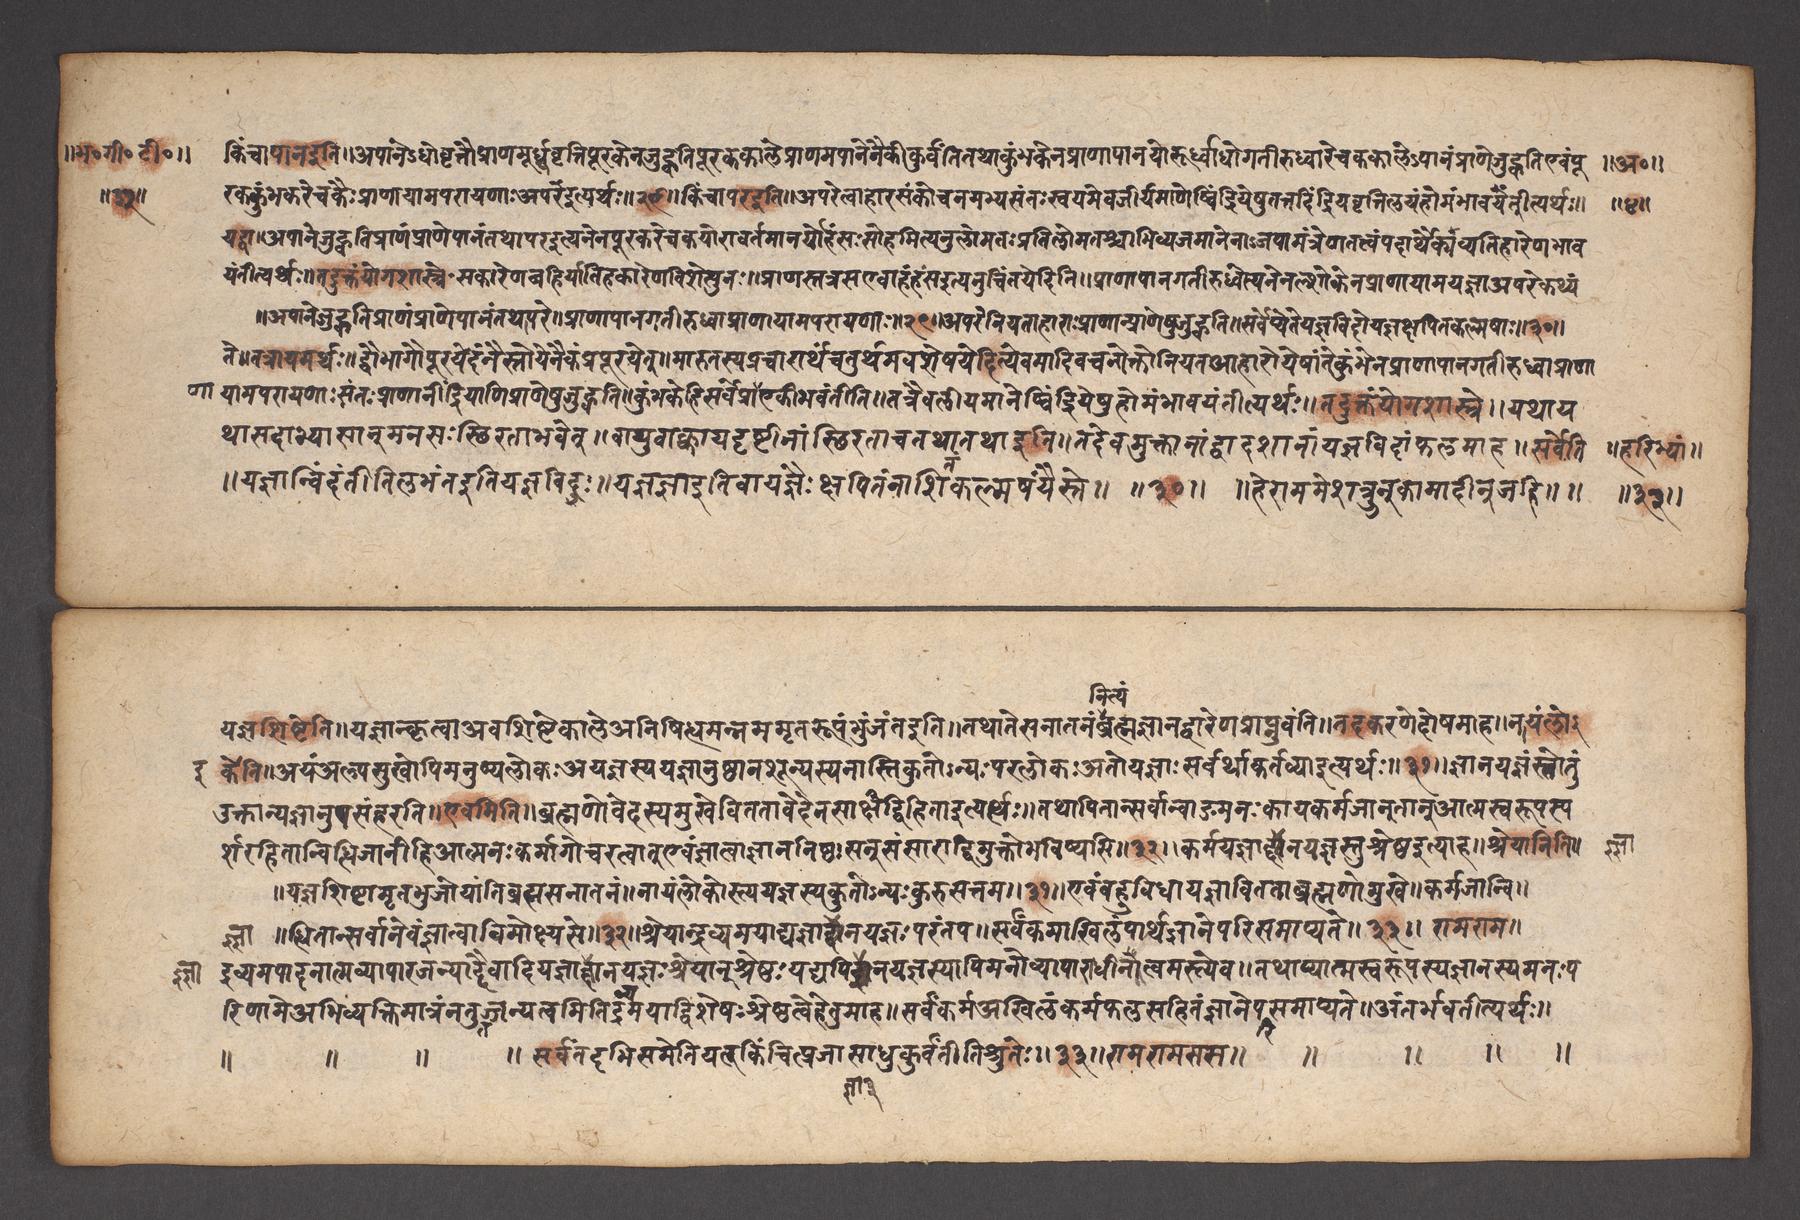 ॥भ॰गी॰टी॰॥ किंचापानइति॥अपानेऽधोवृत्तौप्राणमूर्ध्ववृत्तिंपूरकेनजुह्वतिपूरककालेप्राणमपानेनैकीकुर्वंतितथाकुंभकेनप्राणापानयोरूर्ध्वाधोगतीरुध्वारेचककालेऽपानंप्राणेजुह्वतिएवंपू ॥अ॰॥
रककुंभकरेचकैःप्राणायामपरायणाःअपरेइत्यर्थः॥२९॥किंचापरइति॥अपरेत्वाहारसंकोचनमभ्यसंतःस्वयमेवजीर्यमाणेष्विंद्रियेषुतत्तदिंद्रियवृत्तिलयंहोमंभावयंतीत्यर्थः॥ ॥४॥
यद्वा॥अपानेजुह्वतिप्राणंप्राणेपानंतथापरइत्यनेनपूरकरेचकयोरावर्तमानयोर्हंसःसोहमित्यनुलोमतःप्रतिलोमतश्चाभिव्यज्यमानेनाऽजपामंत्रेणतत्त्वंपदार्थैक्यंव्यतिहारेणभाव
यंतीत्यर्थः॥तदुक्तंयोगशास्त्रे॰सकारेणबहिर्यातिहकारेणविशेत्पुनः॥प्राणस्तत्रसएवाहंहंसइत्यनुचिंतयेदिति॥प्राणापानगतीरुध्वेत्यनेनतुश्लोकेनप्राणायामयज्ञाअपरेकथ्यं
॥अपानेजुह्वतिप्राणंप्राणेपानंतथापरे॥प्राणापानगतीरुध्वाप्राणायामपरायणाः॥२९॥अपरेनियताहाराःप्राणान्प्राणेषुजुह्वति॥सर्वेप्येतेयज्ञविदोयज्ञक्षपितकल्मषाः॥३०॥
ते॥तत्रायमर्थः॥द्वौभागौपूरयेदन्नैस्तोयेनैकंप्रपूरयेत्॥मारुतस्यप्रचारार्थंचतुर्थमवशेषयेदित्येवमादिवचनोक्तोनियतआहारोयेषांतेकुंभेनप्राणापानगतीरुध्वाप्राणा
णायामपरायणाःसंतःप्राणानींद्रियाणिप्राणेषुजुह्वति॥कुंभकेहिसर्वेप्राणाएकीभवंतीति॥तत्रैवलीयमानेष्विंद्रियेषुहोमंभावयंतीत्यर्थः॥तदुक्तंयोगशास्त्रे॥यथाय
थासदाभ्यासान्मनसःस्थिरताभवेत्॥वायुवाक्कायदृष्टीनांस्थिरताचतथातथाइति॥तदेवमुक्तानांद्वादशानांयज्ञविदांफलमाह॥सर्वेति ॥हरिभ्यां॥
॥यज्ञान्विंदंतीतिलभंतइतियज्ञविदुः॥यज्ञज्ञाइतिवायज्ञैःक्षपितंनाशितंकल्मषंयैस्ते॥ ॥३०॥ ॥हेराममेशत्रून्कामादीन्जहि॥॥ ॥३३॥
नित्यं
यज्ञशिष्टेति॥यज्ञान्कृत्वाअवशिष्टेकालेअनिषिद्धमन्नममृतरूपंभुंजंतइति॥तथातेसनातनंब्रह्मज्ञानद्वारेणप्राप्नुवंति॥तदकरणेदोषमाह॥नायंलो
केति॥अयंअल्पसुखोपिमनुष्यलोकःअयज्ञस्ययज्ञानुष्ठानशून्यस्यनास्तिकुतोऽन्यःपरलोकःअतोयज्ञाःसर्वथाकर्तव्याइत्यर्थः॥३१॥ज्ञानयज्ञंस्तोतुं
उक्तान्यज्ञानुपसंहरति॥एवमिति॥ब्रह्मणोवेदस्यमुखेवितताःवेदेनसाक्षाद्विहिताइत्यर्थः॥तथापितान्सर्वान्वाङ्मनःकायकर्मजान्तान्आत्मस्वरूपस्प
र्शरहितान्विद्धिजानीहिआत्मनःकर्मागोचरत्वात्एवंज्ञात्वाज्ञाननिष्ठःसन्संसाराद्विमुक्तोभविष्यसि॥३२॥कर्मयज्ञाज्ज्ञानयज्ञस्तुश्रेष्ठइत्याह॥श्रेयानिति॥ ज्ज्ञा
॥यज्ञशिष्टामृतभुजोयांतिब्रह्मसनातनं॥नायंलोकोस्त्ययज्ञस्यकुतोऽन्यःकुरुसत्तम॥३१॥एवंबहुविधायज्ञावितताब्रह्मणोमुखे॥कर्मजान्वि॥
ज्ज्ञा ॥द्धितान्सर्वानेवंज्ञात्वाविमोक्ष्यसे॥३२॥श्रेयान्द्रव्यमयाद्यज्ञाज्ज्ञानयज्ञःपरंतप॥सर्वंकर्माखिलंपार्थज्ञानेपरिसमाप्यते॥३३॥ रामराम॥
ज्ज्ञा द्रव्यमयादनात्मव्यापारजन्याद्दैवादियज्ञाज्ज्ञानयज्ञःश्रेयान्श्रेष्ठःयद्यपिज्ञानयज्ञस्यापिमनोव्यापाराधीनत्वमस्त्येव॥तथाप्यात्मस्वरूपस्यज्ञानस्यमनःप
रिणामेअभिव्यक्तिमात्रंनतुतज्जन्यत्वमितिद्रव्यमयाद्विशेषःश्रेष्ठत्वेहेतुमाह॥सर्वंकर्मअखिलंकर्मफलसहितंज्ञानेपरिसमाप्यते॥अंतर्भवतीत्यर्थः॥
॥ ॥ ॥ ॥ सर्वंतदभिसमेतियत्किंचित्प्रजासाधुकुर्वंतीतिश्रुतेः॥३३॥रामरामसस॥ ॥ ॥ ॥ ॥